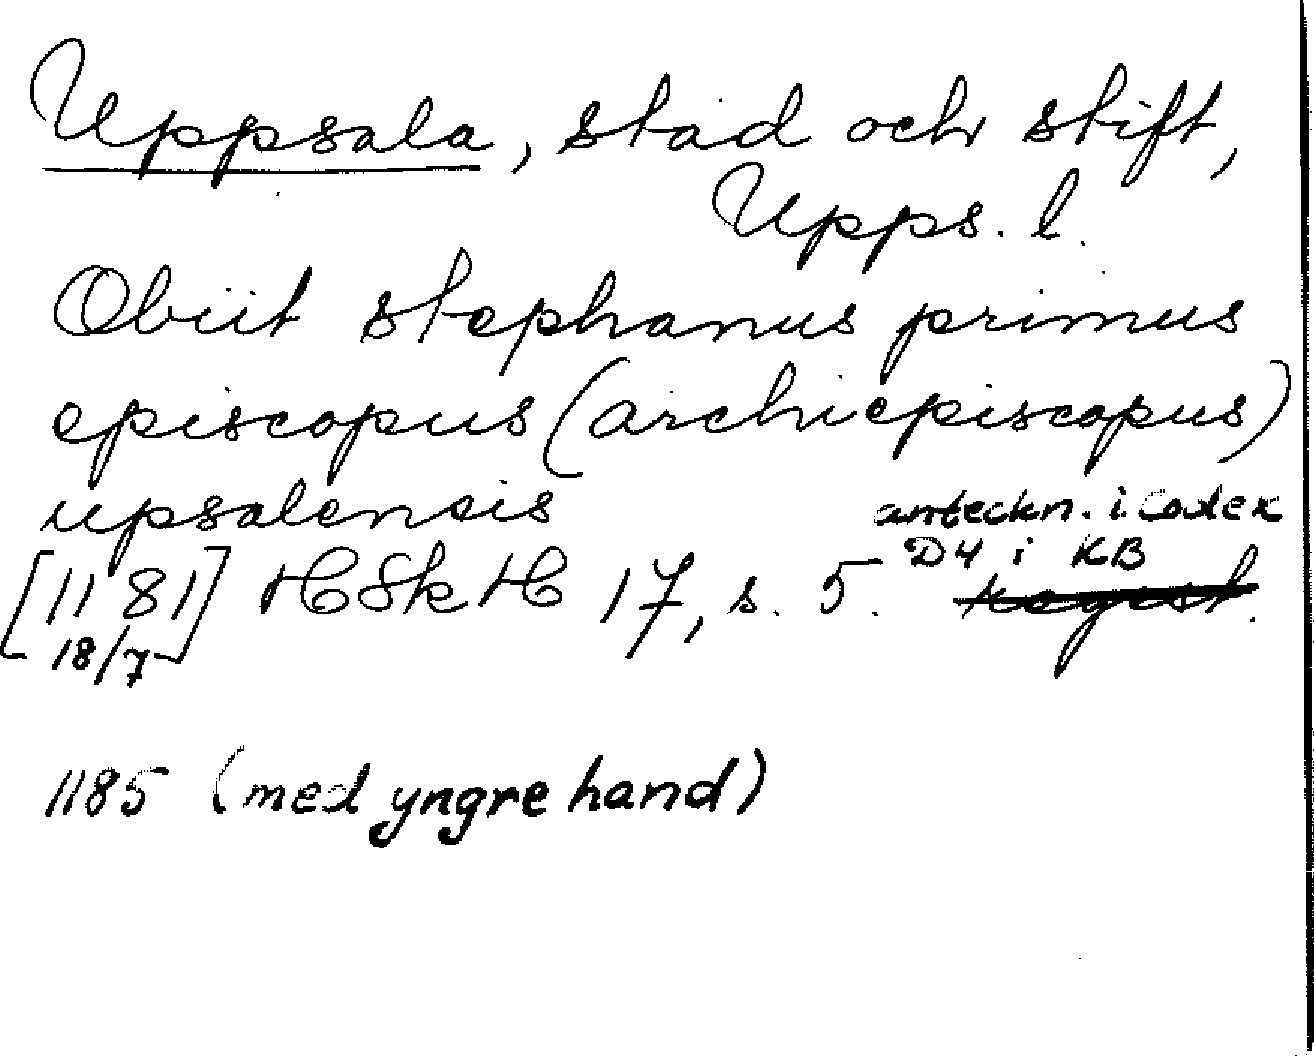 Uppsala, stad och stift,
Upps. l.
Obiit stephanus primus
episcopus (archiepiscopus)
upsalensis
anteckn. i codex
D4 i KB
[1181] HSkH 17, s. 5.
18/7
1185 (med yngre hand)